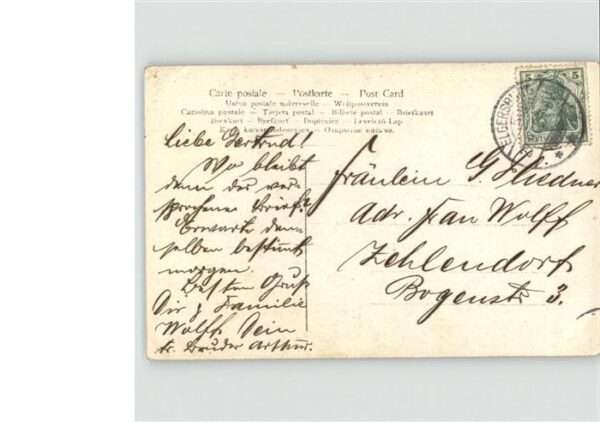 Carte postale — Postkarte — Post Card
Union postale universelle — Weltpostverein
Cartolina postale — Tarjeta postal — Bilhete postal — Briefkaart
Brevkort — Brefkort — Dopisnice — Levelező-Lap
Открытое письмо.
5
Liebe Gertrud!
Wo bleibt
denn der ver-
sprochene Brief?
Erwarte den-
selben bestimmt
morgen.
Besten Gruß
Dir & Familie
Wolff Dein
tr. Bruder Arthur.
Fräulein G. Fliedner
Adr. Jean Wolff
Zehlendorf
Bogenstr 3.